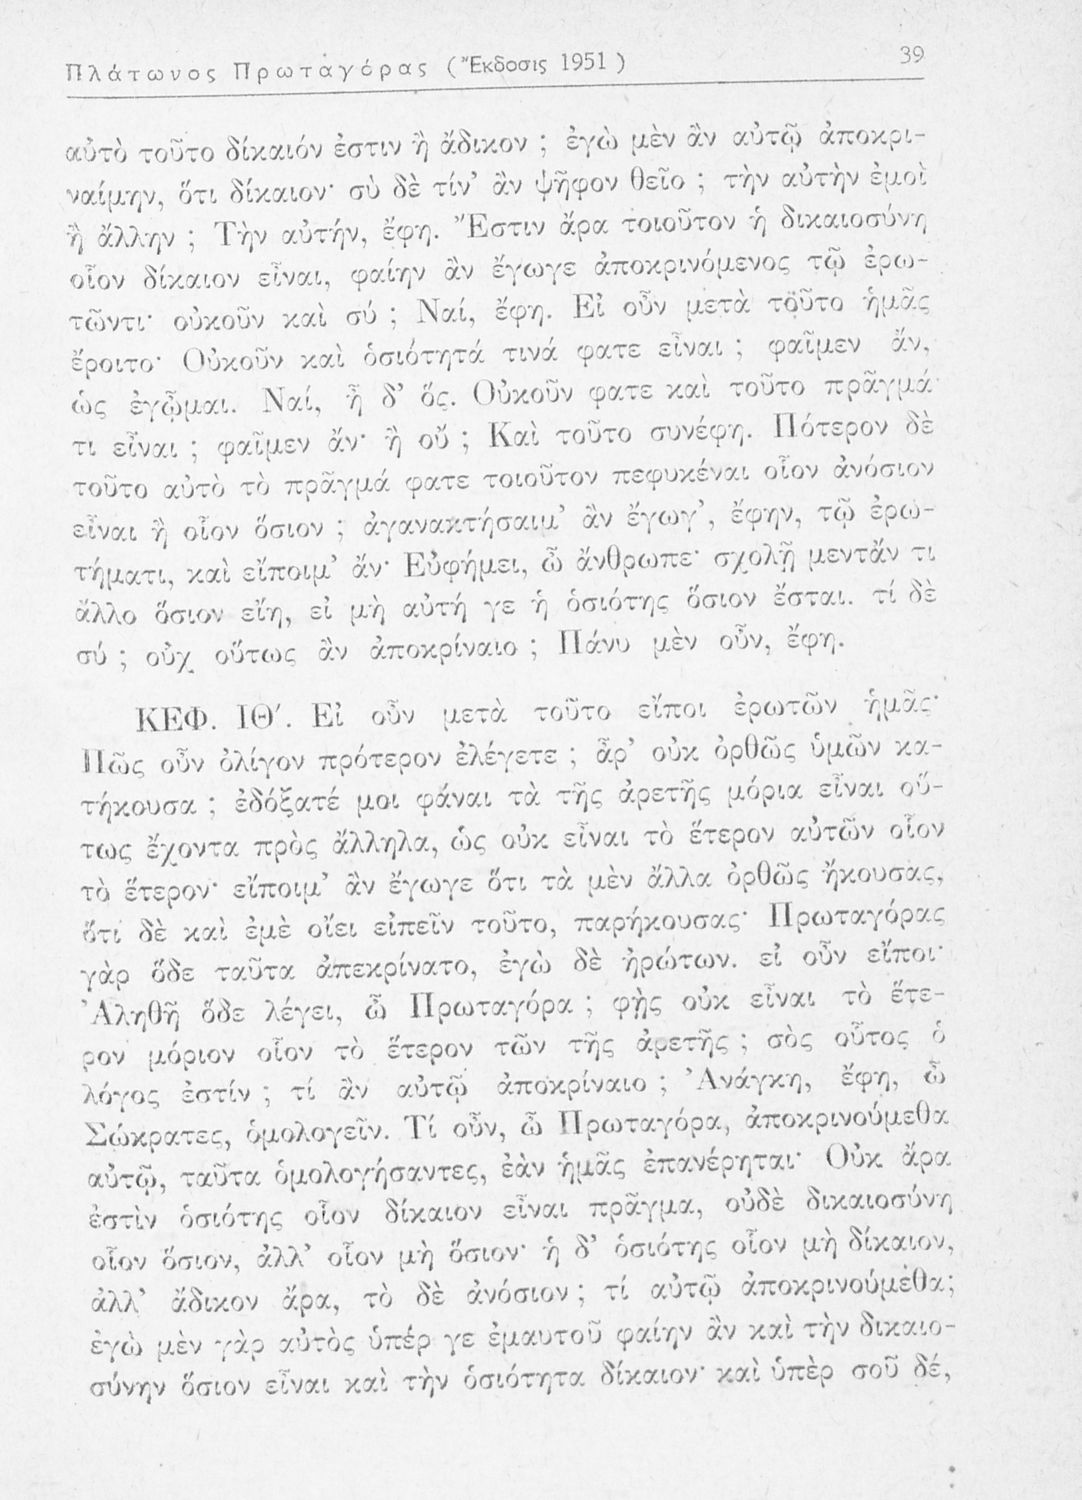 Πλάτωνος Πρωταγόρας (Ἔκδοσις 1951) 39
αὐτὸ τοῦτο δίκαιόν ἐστιν ἢ ἄδικον ; ἐγὼ μὲν ἂν αὐτῷ ἀποκρι-
ναίμην, ὅτι δίκαιον· σὺ δὲ τίν’ ἂν ψῆφον θεῖο ; τὴν αὐτὴν ἐμοὶ
ἢ ἄλλην ; Τὴν αὐτήν, ἔφη. Ἔστιν ἄρα τοιοῦτον ἡ δικαιοσύνη
οἷον δίκαιον εἶναι, φαίην ἂν ἔγωγε ἀποκρινόμενος τῷ ἐρω-
τῶντι· οὐκοῦν καὶ σύ ; Ναί, ἔφη. Εἰ οὖν μετὰ τοῦτο ἡμᾶς
ἔροιτο· Οὐκοῦν καὶ ὁσιότητά τινά φατε εἶναι ; φαῖμεν ἄν,
ὡς ἐγᾦμαι. Ναί, ἦ δ’ ὅς. Οὐκοῦν φατε καὶ τοῦτο πρᾶγμά
τι εἶναι ; φαῖμεν ἄν· ἢ οὔ ; Καὶ τοῦτο συνέφη. Πότερον δὲ
τοῦτο αὐτὸ τὸ πρᾶγμά φατε τοιοῦτον πεφυκέναι οἷον ἀνόσιον
εἶναι ἢ οἷον ὅσιον ; ἀγανακτήσαιμ’ ἂν ἔγωγ’, ἔφην, τῷ ἐρω-
τήματι, καὶ εἴποιμ’ ἄν· Εὐφήμει, ὦ ἄνθρωπε· σχολῇ μεντἄν τι
ἄλλο ὅσιον εἴη, εἰ μὴ αὐτή γε ἡ ὁσιότης ὅσιον ἔσται. τί δὲ
σύ ; οὐχ οὕτως ἂν ἀποκρίναιο ; Πάνυ μὲν οὖν, ἔφη.
ΚΕΦ. ΙΘ′. Εἰ οὖν μετὰ τοῦτο εἴποι ἐρωτῶν ἡμᾶς·
Πῶς οὖν ὀλίγον πρότερον ἐλέγετε ; ἆρ’ οὐκ ὀρθῶς ὑμῶν κα-
τήκουσα ; ἐδόξατέ μοι φάναι τὰ τῆς ἀρετῆς μόρια εἶναι οὕ-
τως ἔχοντα πρὸς ἄλληλα, ὡς οὐκ εἶναι τὸ ἕτερον αὐτῶν οἷον
τὸ ἕτερον· εἴποιμ’ ἂν ἔγωγε ὅτι τὰ μὲν ἄλλα ὀρθῶς ἤκουσας,
ὅτι δὲ καὶ ἐμὲ οἴει εἰπεῖν τοῦτο, παρήκουσας· Πρωταγόρας
γὰρ ὅδε ταῦτα ἀπεκρίνατο, ἐγὼ δὲ ἠρώτων. εἰ οὖν εἴποι·
Ἀληθῆ ὅδε λέγει, ὦ Πρωταγόρα ; φῂς οὐκ εἶναι τὸ ἕτε-
ρον μόριον οἷον τὸ ἕτερον τῶν τῆς ἀρετῆς ; σὸς οὗτος ὁ
λόγος ἐστίν ; τί ἂν αὐτῷ ἀποκρίναιο ; Ἀνάγκη, ἔφη, ὦ
Σώκρατες, ὁμολογεῖν. Τί οὖν, ὦ Πρωταγόρα, ἀποκρινούμεθα
αὐτῷ, ταῦτα ὁμολογήσαντες, ἐὰν ἡμᾶς ἐπανέρηται· Οὐκ ἄρα
ἐστὶν ὁσιότης οἷον δίκαιον εἶναι πρᾶγμα, οὐδὲ δικαιοσύνη
οἷον ὅσιον, ἀλλ’ οἷον μὴ ὅσιον· ἡ δ’ ὁσιότης οἷον μὴ δίκαιον,
ἀλλ’ ἄδικον ἄρα, τὸ δὲ ἀνόσιον ; τί αὐτῷ ἀποκρινούμεθα;
ἐγὼ μὲν γὰρ αὐτὸς ὑπέρ γε ἐμαυτοῦ φαίην ἂν καὶ τὴν δικαιο-
σύνην ὅσιον εἶναι καὶ τὴν ὁσιότητα δίκαιον· καὶ ὑπὲρ σοῦ δέ,